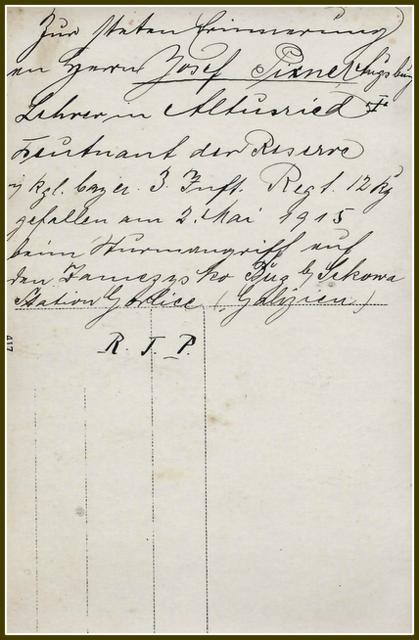 Zur steten Erinnerung
an Herrn Josef Pixner Augsburg
Lehrer in Altusried
Leutnant der Reserve
kgl. bayer. 3. Inft. Regt. 12 Kg
gefallen am 2. Mai 1915
beim Sturmangriff auf
den Zamczysko Bg b Sekowa
Station Gorlice (Galizien)
R. I. P.
417